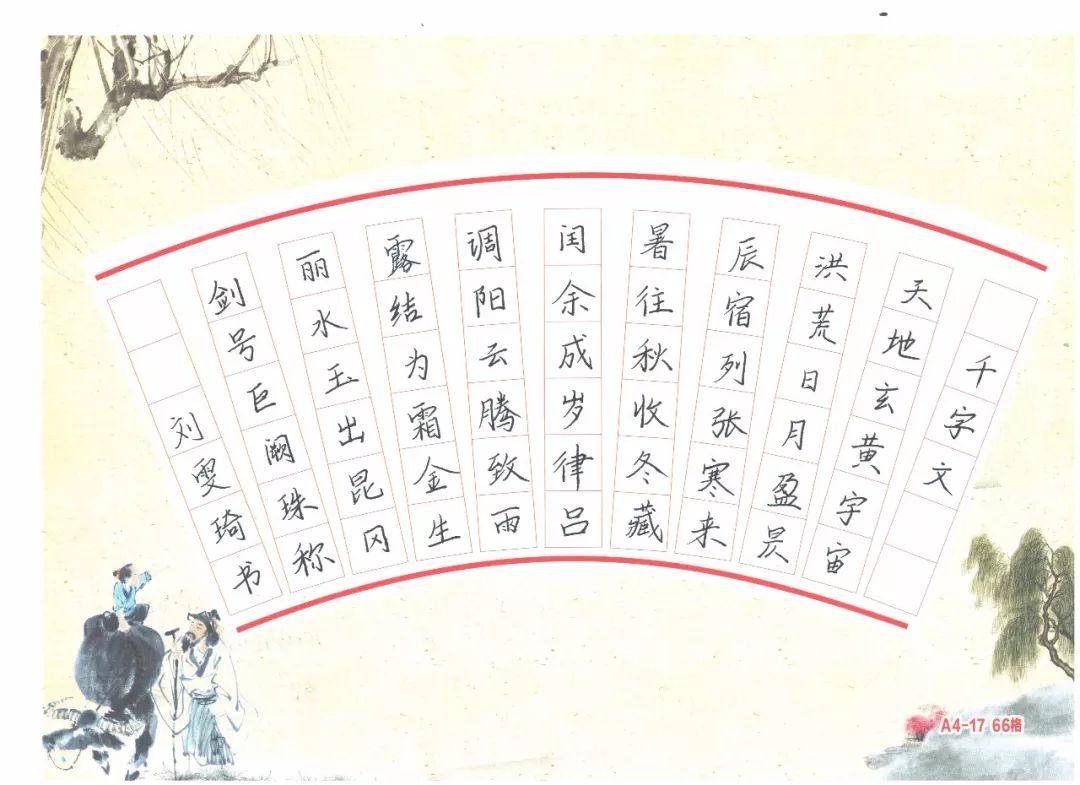 千字文
天地玄黄宇宙
洪荒日月盈昃
辰宿列张寒来
暑往秋收冬藏
闰余成岁律吕
调阳云腾致雨
露结为霜金生
丽水玉出昆冈
剑号巨阙珠称
刘雯琦书
A4-17 66格